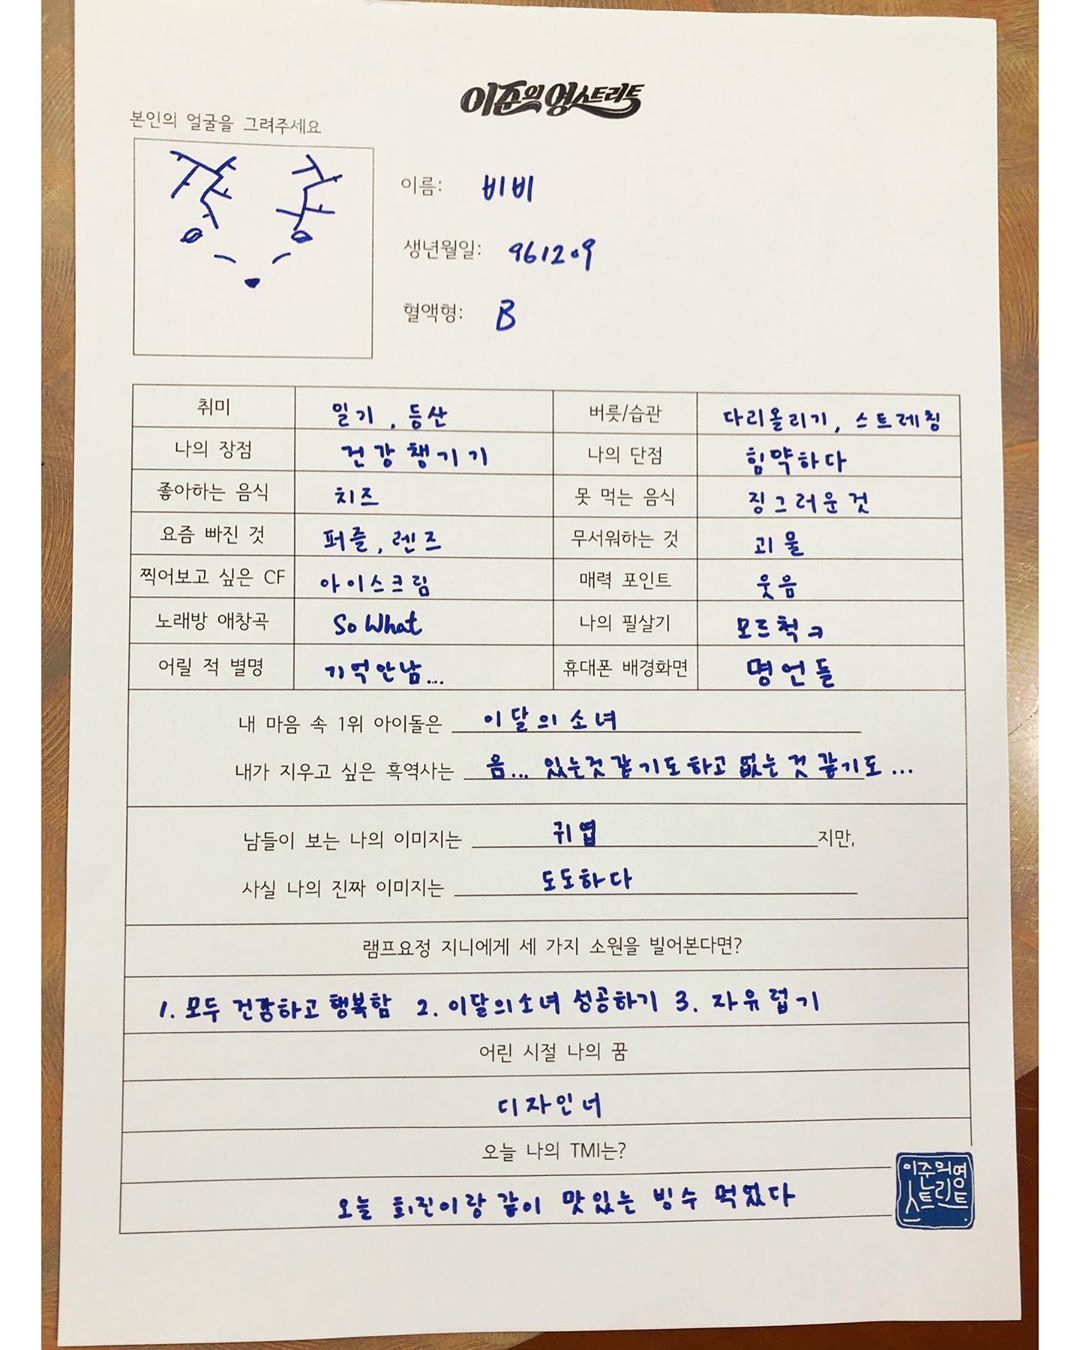 이준의 영스트리트
본인의 얼굴을 그려주세요
이름: 비비
생년월일: 961209
혈액형: B
취미 일기, 등산 버릇/습관 다리올리기, 스트레칭
나의 장점 건강챙기기 나의 단점 힘약하다
좋아하는 음식 치즈 못 먹는 음식 징그러운것
요즘 빠진 것 퍼즐, 렌즈 무서워하는 것 괴물
찍어보고 싶은 CF 아이스크림 매력 포인트 웃음
노래방 애창곡 So What 나의 필살기 모르척ㅋ
어릴 적 별명 기억안남... 휴대폰 배경화면 명언들
내 마음 속 1위 아이돌은 이달의소녀
내가 지우고 싶은 흑역사는 음... 있는것 같기도하고 없는 것 같기도...
남들이 보는 나의 이미지는 귀엽 지만,
사실 나의 진짜 이미지는 도도하다
램프요정 지니에게 세 가지 소원을 빌어본다면?
1. 모두 건강하고 행복함 2. 이달의소녀 성공하기 3. 자유럽기
어린 시절 나의 꿈
디자인너
오늘 나의 TMI는?
오늘 희진이랑 같이 맛있는 빙수 먹었다
이준의영
스트리트